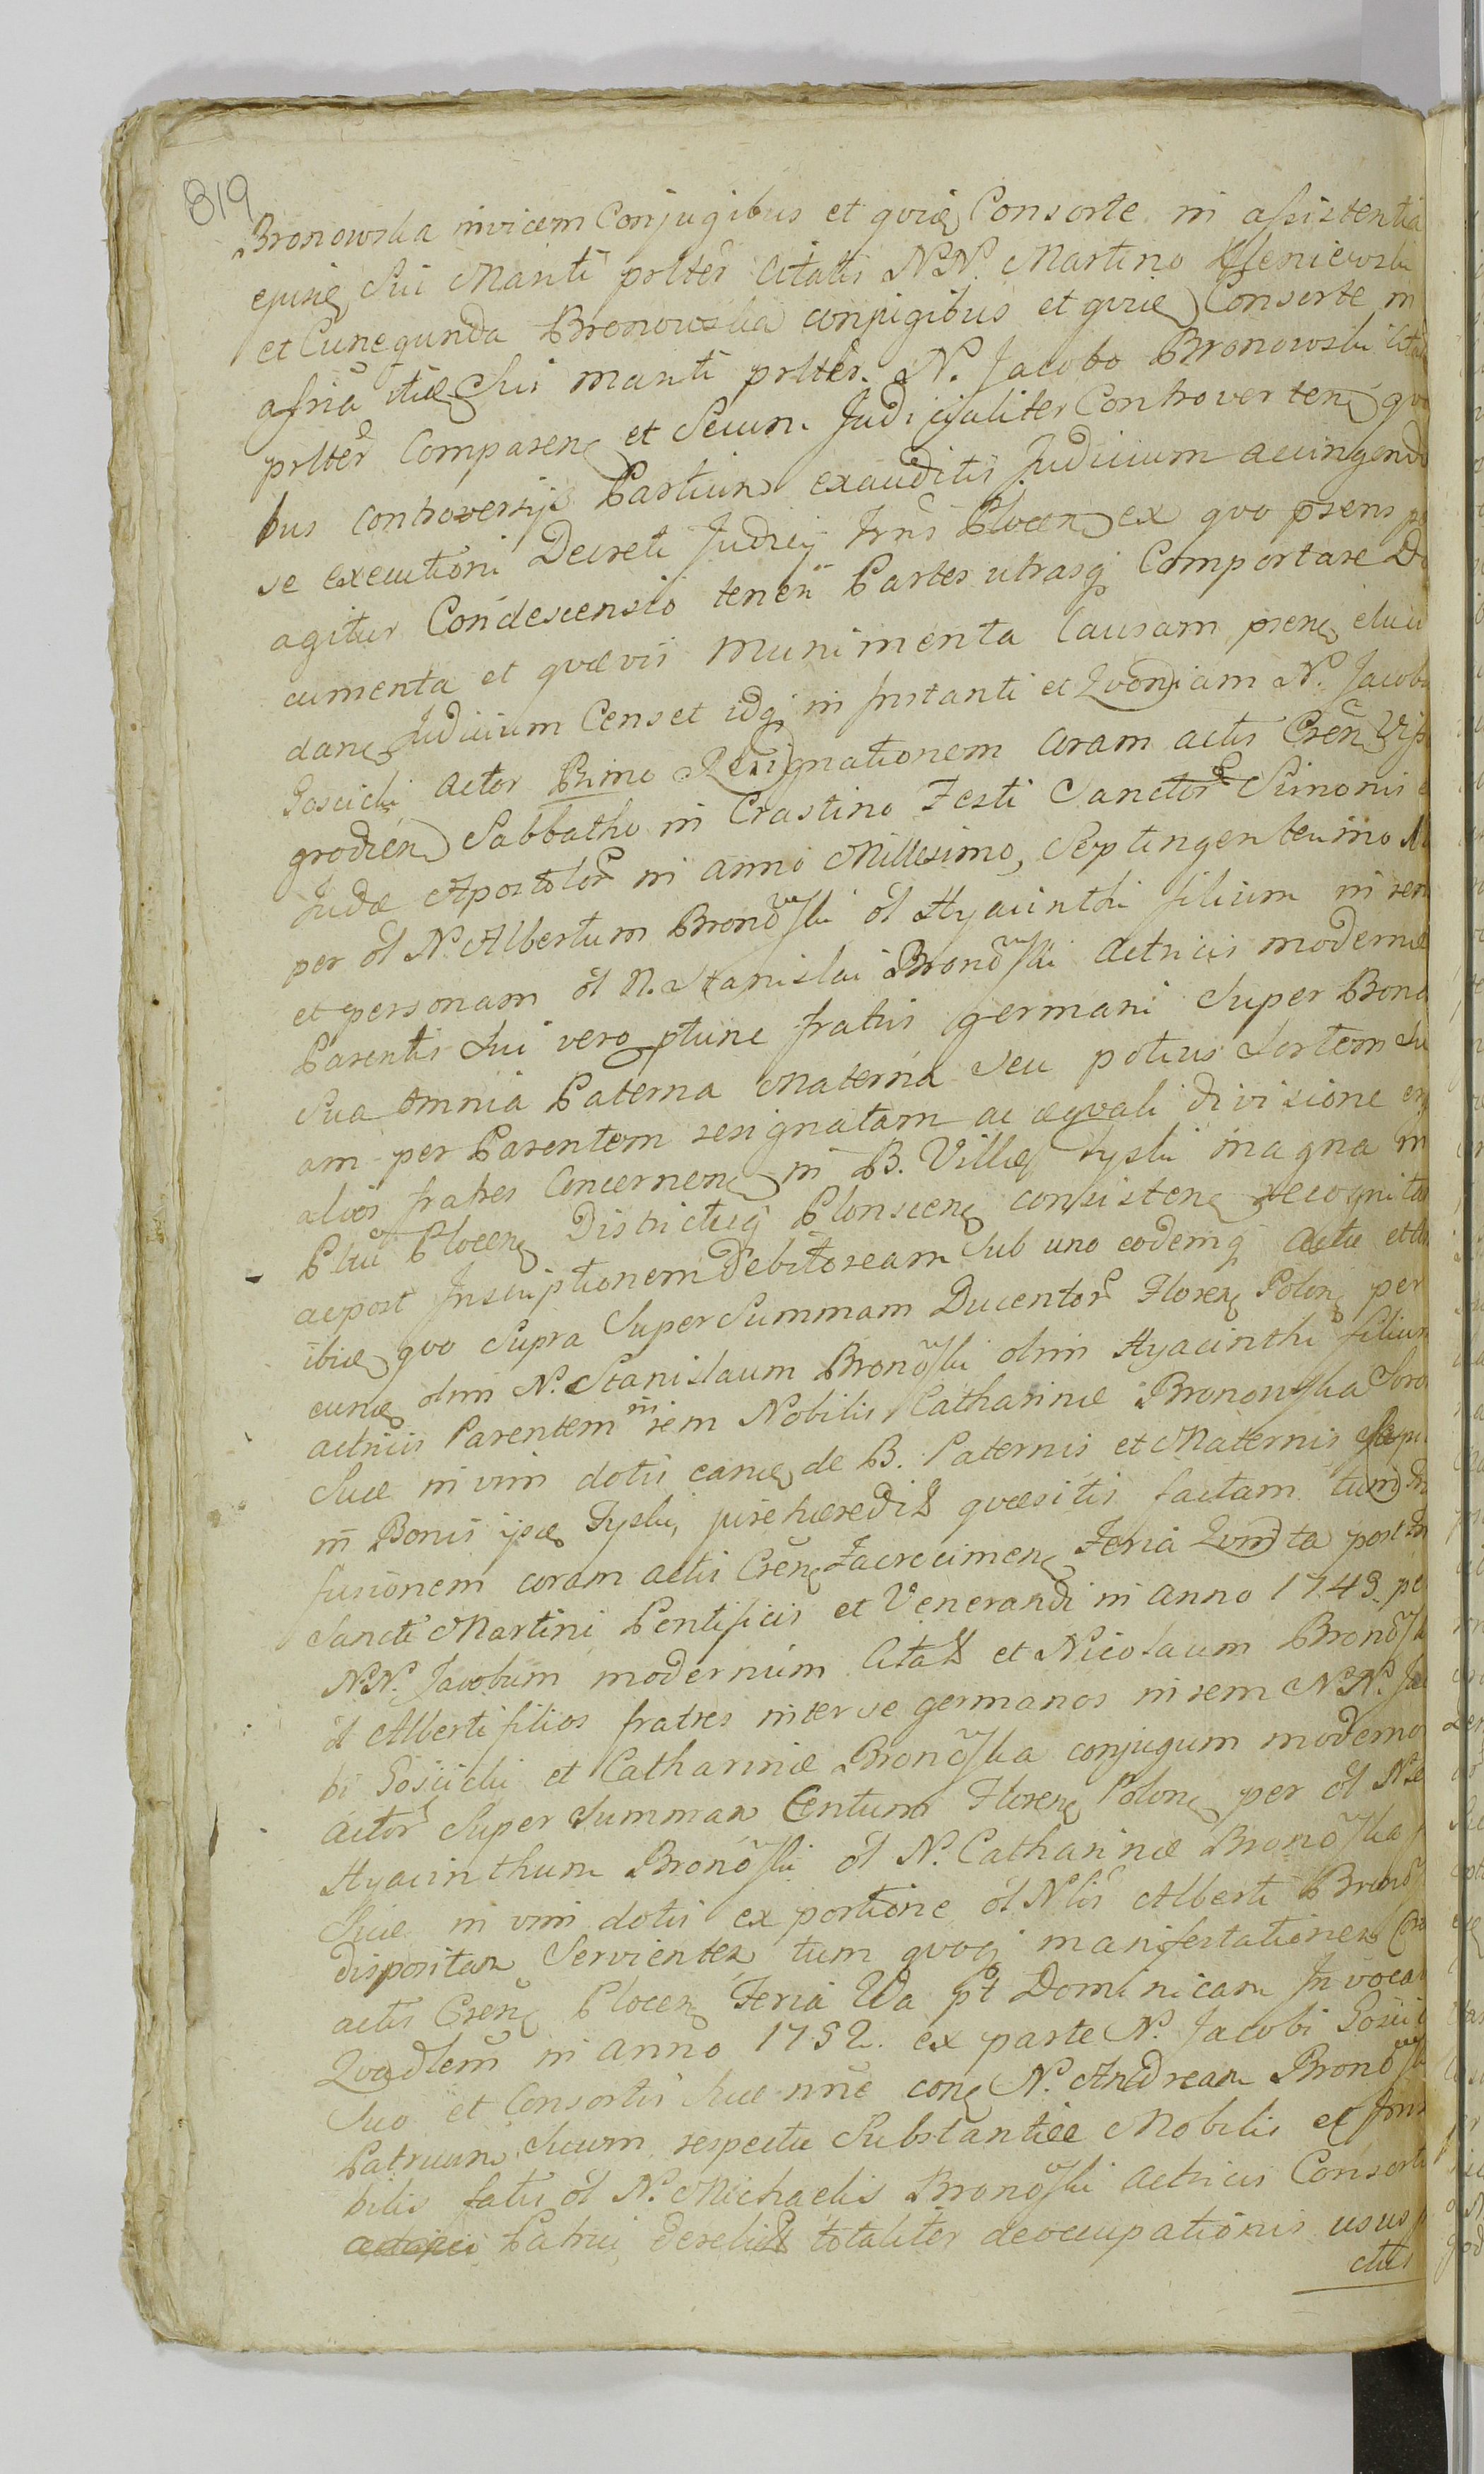 819
Bronowska invicem Conjugibus et qvidē Consorte in assistentia
ejusdē Sui Mariti prltēr Citatis N.N. Martino
et Cunegunda Bronowska conjugibus et qvidē Consorte in
assñã Sui mariti prltēr. N. Jacobo Bronowski
prltēr Comparenē et Secum Judicialiter Controvertenē qvi
bus controversijs Partium exauditis Judicium accingendo
se executioni Decreti Judicij Plocen ex qvo prsens pe
agitur Condescensio teneri Partes utrasq Comportare Do
cumenta et qvævis Munimenta Causam prsenē eluci
danē Judicium Censet idq in Instanti et Qvoniam N. Jacobus
Goscicki Actor Primo Resignationem coram actis Cñrēn
grodien Sabbatho in Crastino Festi Sanctor Simonis e
Judæ Apostolor in anno Millesimo, Septingentesimo
per ol N. Albertum Bronoski ol Hyacinthi filium in rem
et personam ol N. Stanislai Bronoski Actricis modernæ
Parentis Sui vero ptunc fratris germani Super Bona
Sua Omnia Paterna Materna Seu potius Sortem Su
am per Parentem resignatam ac æqvali divisione erg
alios fratres Concernenē in B. Villæ Tyski magna in
Pltu Plocenē Districtuq Plonscenē consistenē recognitam
ac post Inscriptionem debitoream Sub uno eodemq Actu et
ibidē qvo Supra Super Summam Ducentor Florenē Polonē per
eundē olim N. Stanislaum Bronoski olim Hyacinthi filium
actricis Parentem in rem Nobilis Catharinæ Bronowska Soro
Suæ in vim dotis eandē de B. Paternis et Maternis
in Bonis ijsdē Tyski, jure hæredit qvæsitis factam tum
fusionem coram actis Cñrenē Zacrocimenē Feria Qvinta post
Sancti Martini Pontificis et Venerandi in anno 1749 pe
N.N. Jacobum modernum Citat et Nicolaum Bronoski
ol Alberti filios fratres inter se germanos in rem N.N. Jaco
bi Goscicki et Catharinæ Bronoska conjugum moderno
Actor Super Summam Centum Florenē Polonē per ol N.
Hyacinthum Bronoski ol N. Catharinæ Bronoska
Suæ in vim dotis ex portione ol Nlis Alberti Brono
dispositam Servientem tum qvoq manifestationem Cora
actis Cñrenē Plocenē Feria IIda pt Dominicam Invocav
Qvadlem in anno 1752. ex parte N. Jacobi Goscic
Suo et Consortis Suæ nñe conē N. Andream Bronoski
Patruum Suum respectu Substantiæ Mobilis et
bilis fatis ol N. Michaelis Bronoski Actricis Consorti
Patrui derelict totaliter deoccupationis usus
ctus